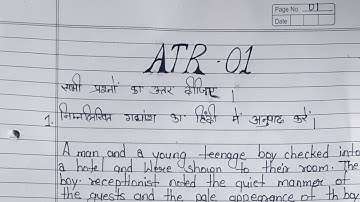 Page No. 01
Date
ATR-01
सभी प्रश्नों का उत्तर दीजिए।
1. निम्नलिखित गद्यांश का हिंदी में अनुवाद करें।
A man and a young teenage boy checked into
a hotel and were shown to their room. The
boy. receptionist noted the quiet manner of
the guests and the pale appearance of th boy